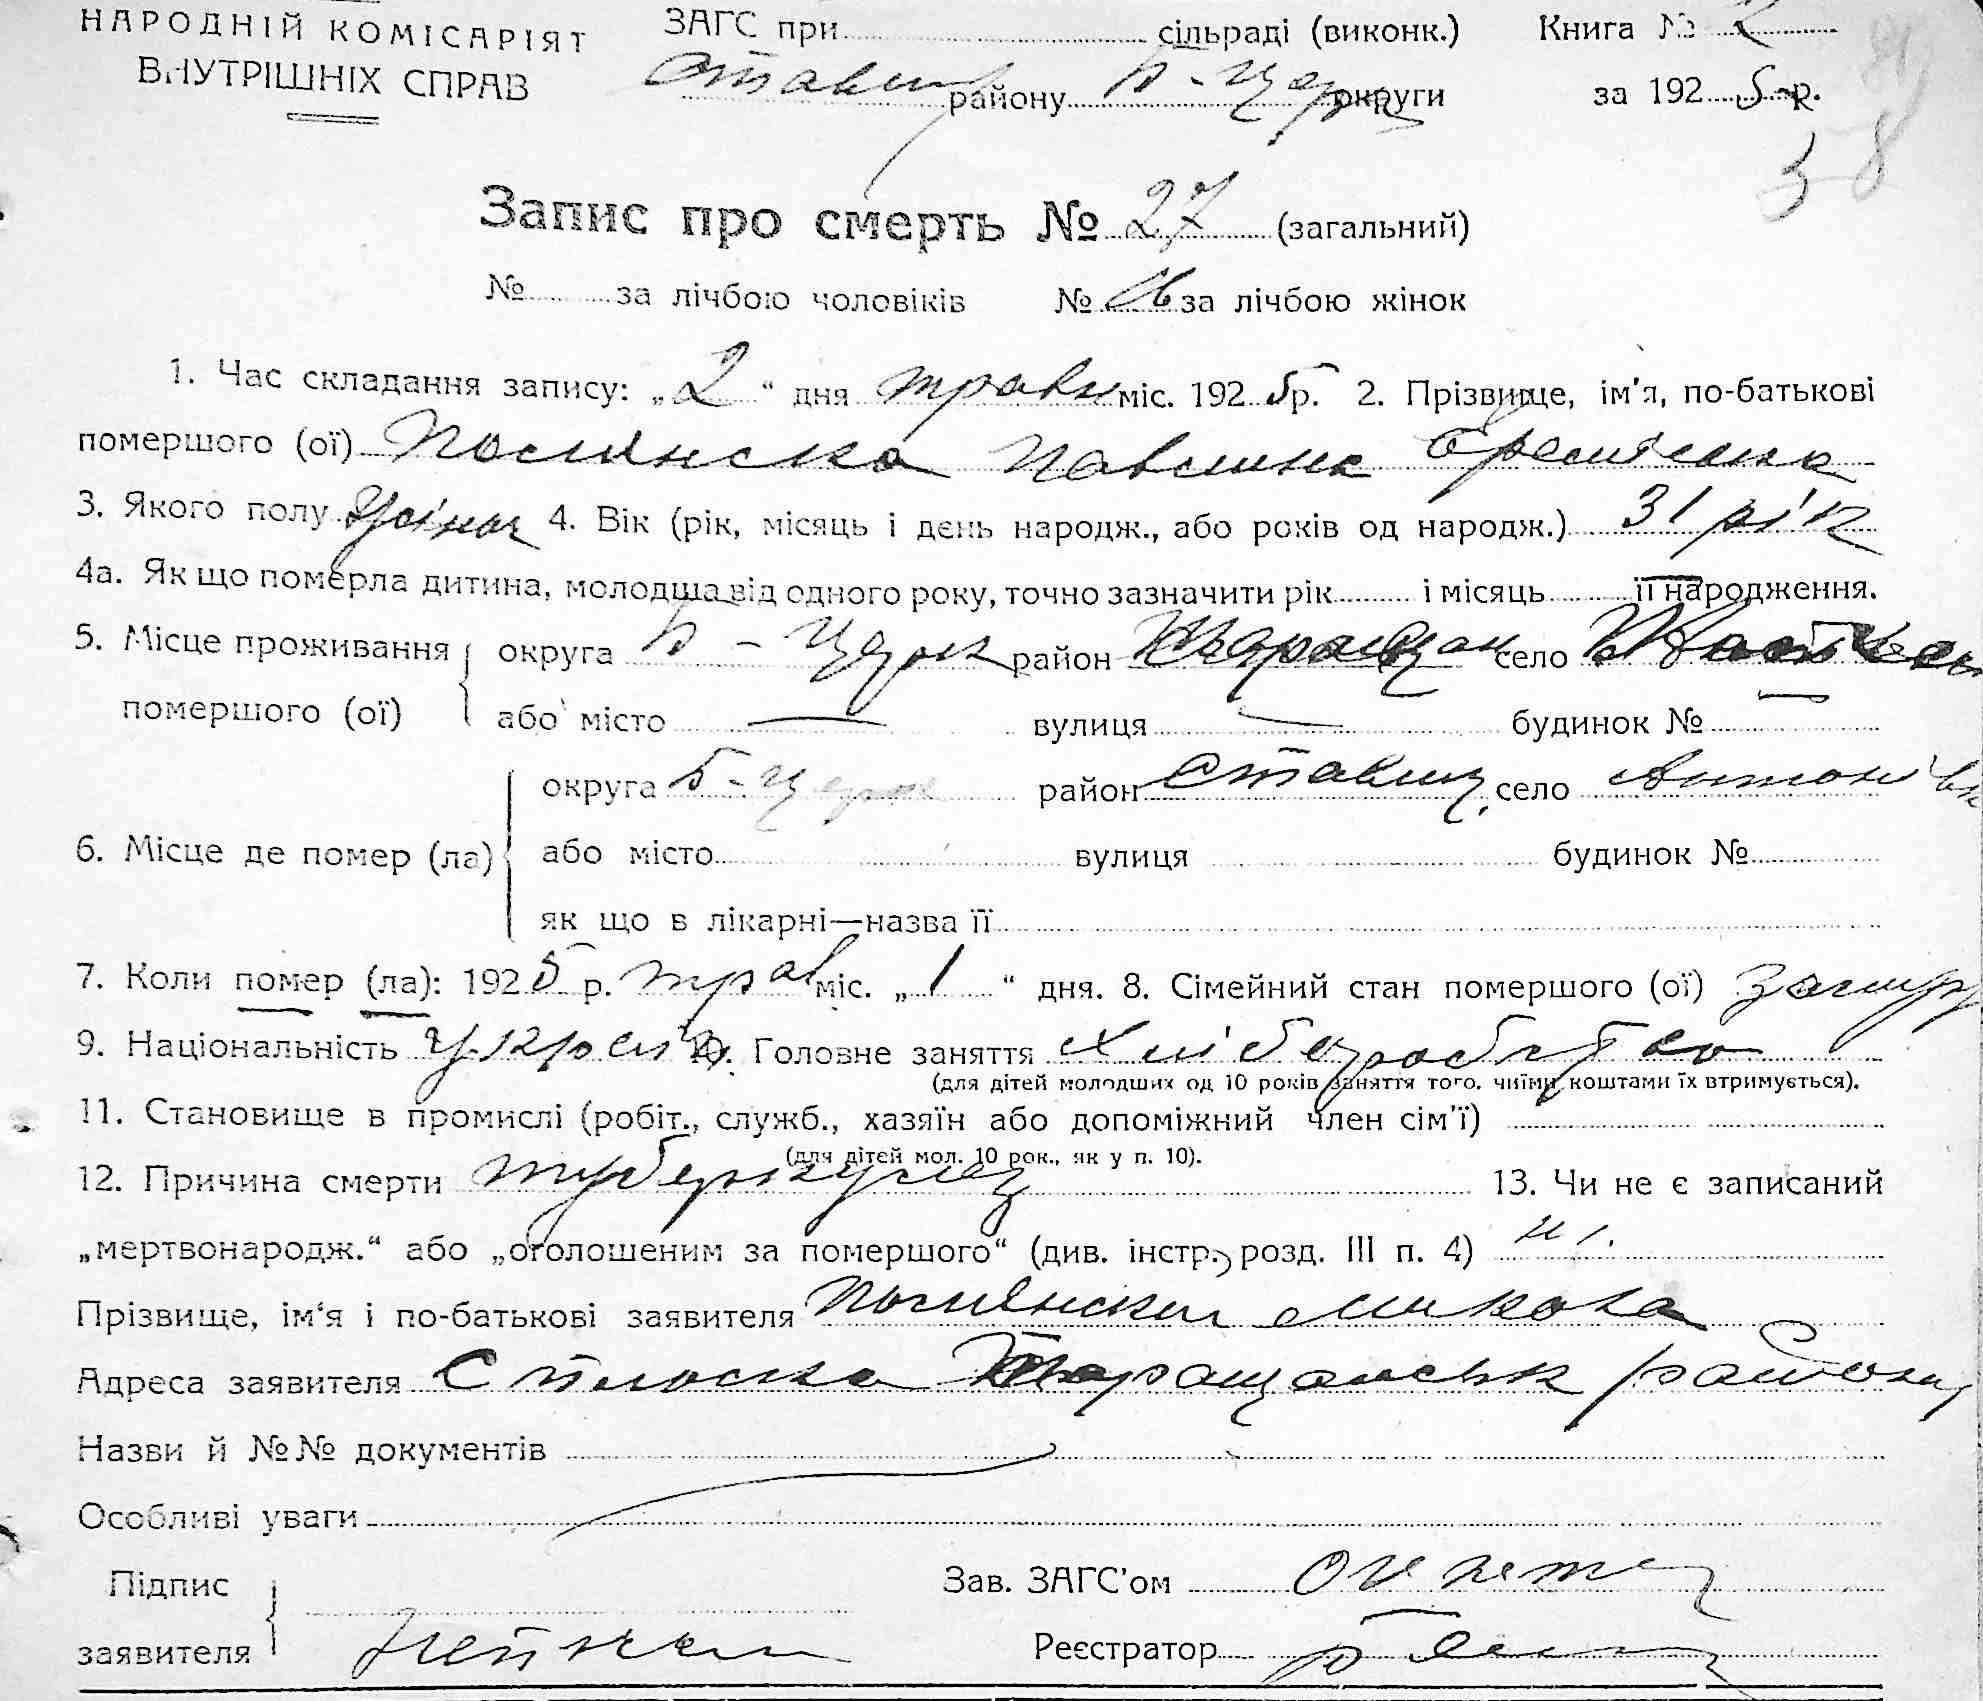 НАРОДНІЙ КОМІСАРІЯТ
ВНУТРІШНІХ СПРАВ
ЗАГС при сільраді (виконк.)
Ставищ району Б-Церк округи
Книга № 2
за 1925 р.
38
Запис про смерть № 27 (загальний)
№ за лічбою чоловіків № 16 за лічбою жінок
1. Час складання запису: „2“ дня травн міс. 1925 р. 2. Прізвище, ім'я, по-батькові
помершого (ої)
3. Якого полу жіноч 4. Вік (рік, місяць і день народж., або років од народж.) 31 рік
4а. Як що померла дитина, молодша від одного року, точно зазначити рік і місяць її народження.
5. Місце проживання помершого (ої)
округа Б-Церк район Таращан село
або місто — вулиця — будинок № —
6. Місце де помер (ла)
округа Б-Церк район Ставищ село Антонівк
або місто вулиця будинок №
як що в лікарні—назва її
7. Коли помер (ла): 1925 р. трав міс. „1“ дня. 8. Сімейний стан помершого (ої) замуж
9. Національність україн 10. Головне заняття хліборобство
(для дітей молодших од 10 років заняття того, чиїми коштами їх втримується).
11. Становище в промислі (робіт., служб., хазяїн або допоміжний член сім'ї)
(для дітей мол. 10 рок., як у п. 10).
12. Причина смерти туберкульоз 13. Чи не є записаний
„мертвонародж.“ або „оголошеним за помершого“ (див. інстр., розд. III п. 4) ні.
Прізвище, ім'я і по-батькові заявителя Микола
Адреса заявителя С Плоска Таращанськ району
Назви й №№ документів
Особливі уваги
Підпис заявителя
Зав. ЗАГС'ом
Реєстратор